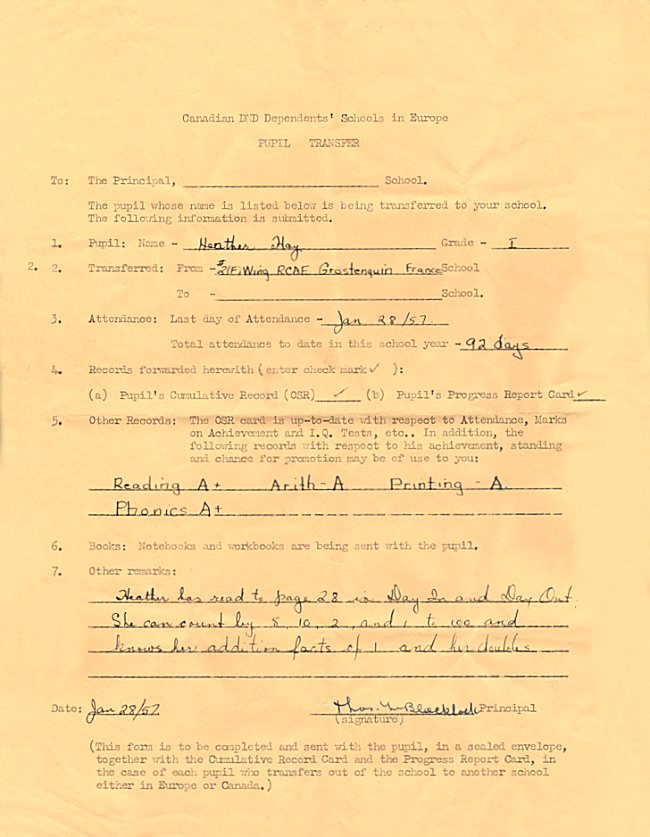 Canadian DND Dependents' Schools in Europe
PUPIL TRANSFER
To: The Principal, School.
The pupil whose name is listed below is being transferred to your school.
The following information is submitted.
1. Pupil: Name - Heather Hay Grade - I
2. 2. Transferred: From - #2(F) Wing RCAF Grostenquin France School
To - School.
3. Attendance: Last day of Attendance - Jan 28/57
Total attendance to date in this school year - 92 days
4. Records forwarded herewith (enter check mark ✓ ):
(a) Pupil's Cumulative Record (OSR) ✓ (b) Pupil's Progress Report Card ✓
5. Other Records: The OSR card is up-to-date with respect to Attendance, Marks
on Achievement and I.Q. Tests, etc.. In addition, the
following records with respect to his achievement, standing
and chance for promotion may be of use to you:
Reading A+ Arith - A Printing - A.
Phonics A+
6. Books: Notebooks and workbooks are being sent with the pupil.
7. Other remarks:
Heather has read to page 28 in Day In and Day Out.
She can count by 5, 10, 2, and 1 to 100 and
knows her addition facts of 1 and her doubles
Date: Jan 28/57. Thos. Blacklock Principal
(signature)
(This form is to be completed and sent with the pupil, in a sealed envelope,
together with the Cumulative Record Card and the Progress Report Card, in
the case of each pupil who transfers out of the school to another school
either in Europe or Canada.)